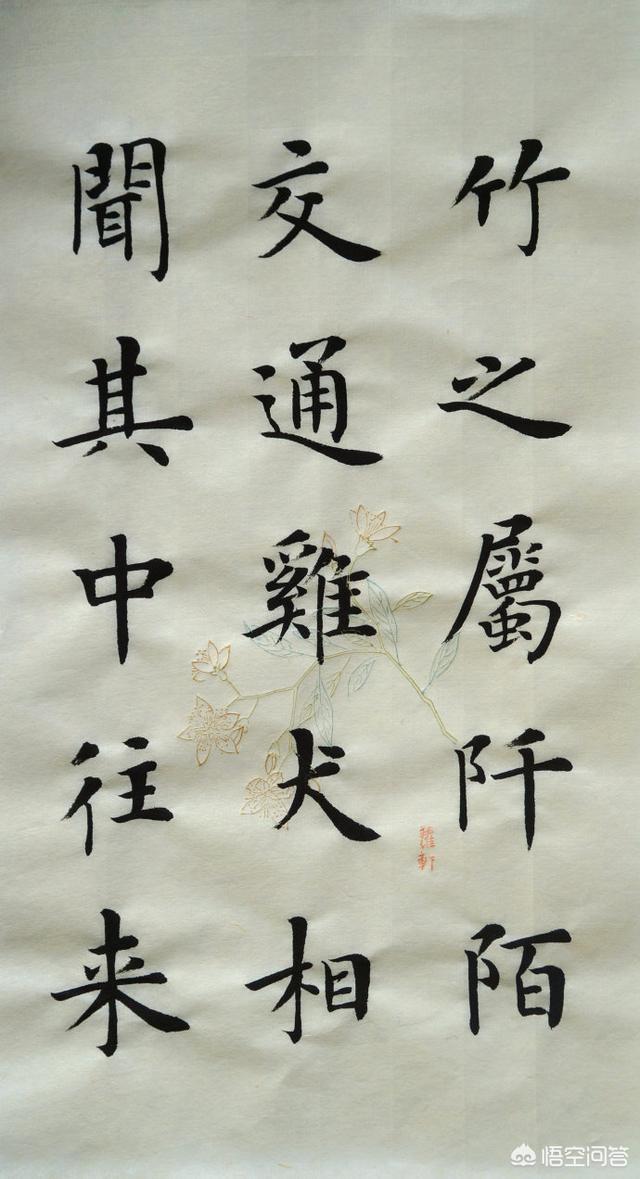 竹之屬阡陌
交通雞犬相
聞其中往来
悟空问答